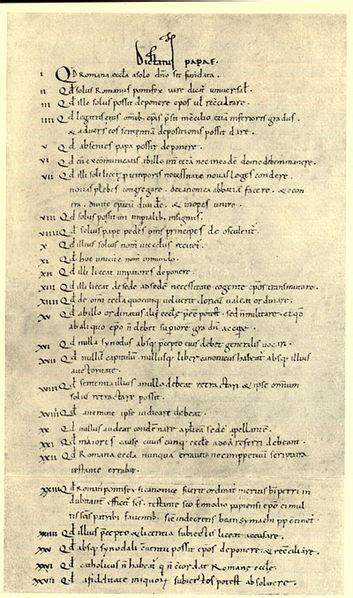 Dictatus papae.
I Qd Romana eccla a solo dno sit fundata.
II Qd solus Romanus pontifex iure dicat universal.
III Qd ille solus possit deponere epos vel reciliare.
IIII Qd legatus eius omib; epis presit in concilio etia inferioris gradus
& adversus eos sententia depositionis possit dare.
V Qd absentes papa possit deponere.
VI Qd cu excommunicatis ab illo int cetera nec in eade domo debemus manere.
VII Qd illi soli licet p temporis necessitate novas leges condere
novas plebes congregare. de canonica abbatia facere. & econ
tra. divite episcopatu dividere. & inopes unire.
VIII Qd solus possit uti imperialib; insigniis.
VIIII Qd solius pape pedes oms principes deosculentur.
X Qd illius solius nom in ecclesiis recitetur.
XI Qd hoc unicu est nom in mundo.
XII Qd illi liceat imperatores deponere.
XIII Qd illi liceat de sede ad sede necessitate cogente epos transmutare.
XIIII Qd de omi eccla quocumq; voluerit clericu valeat ordinare.
XV Qd ab illo ordinatus alii eccle preesse potest. sed non militare. et qd
ab aliquo epo n debet superiore gradu accipe.
XVI Qd nulla synodus absq; precepto eius debet generalis vocari.
XVII Qd nullu capitulu nullusq; liber canonicus habeatur absq; illius
auctoritate.
XVIII Qd sententia illius a nullo debeat retractari & ipse omnium
solus retractare possit.
XVIIII Qd a nemine ipse iudicari debeat.
XX Qd nullus audeat condemnare aplica sede apellante.
XXI Qd maiores cause cuiuscunq; eccle ad ea referri debeant.
XXII Qd Romana eccla nunqua erravit nec inppetuu scriptura
testante errabit.
XXIII Qd Romanus pontifex si canonice fuerit ordinatus meritis b petri in
dubitanter efficitur scs. testante sco Ennodio papiensi epo ei mul
tis scis patrib; faventib; sic in decretis beati Symachi pp continet.
XXIIII Qd illius pcepto & licentia subiectis liceat accusare.
XXV Qd absq; synodali conventu possit epos deponere & reciliare.
XXVI Qd catholicus n habeatur qui n concordat Romane eccle.
XXVII Qd a fidelitate iniquoru subiectos potest absolvere.